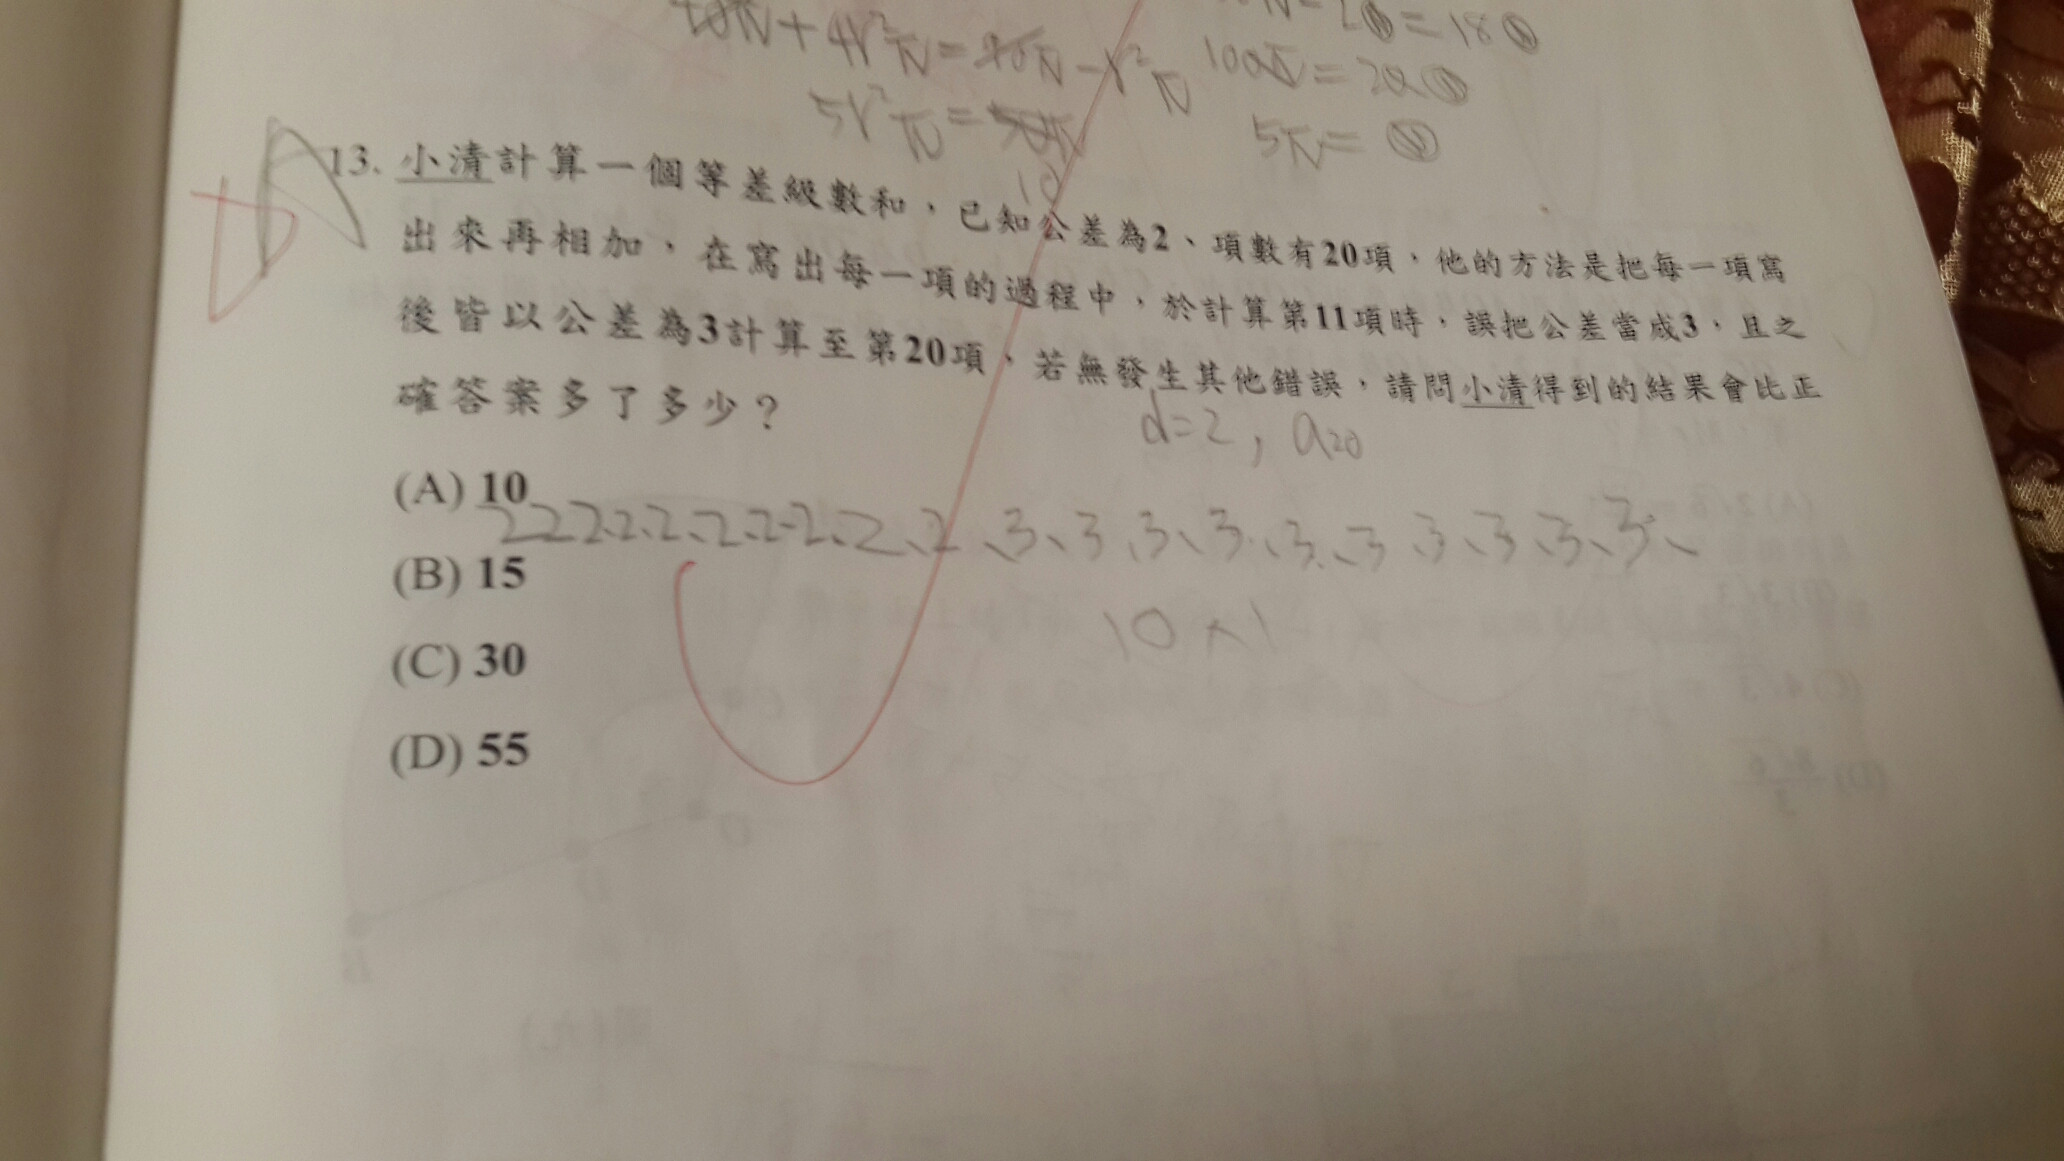 +4r²π=
-r²π
=18
100π=20
5r²π=
5π=
10
D
13. 小清計算一個等差級數和，已知公差為2、項數有20項，他的方法是把每一項寫
出來再相加，在寫出每一項的過程中，於計算第11項時，誤把公差當成3，且之
後皆以公差為3計算至第20項、若無發生其他錯誤，請問小清得到的結果會比正
確答案多了多少？
d=2, a20
(A) 10
2 2 2 2、2、2、2、2、2、2、3、3、3、3、3、3、3、3、3、3、
(B) 15
10×1
(C) 30
(D) 55